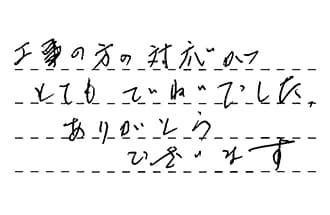 工事の方の対応がとってもていねいでした。
ありがとう
ございます